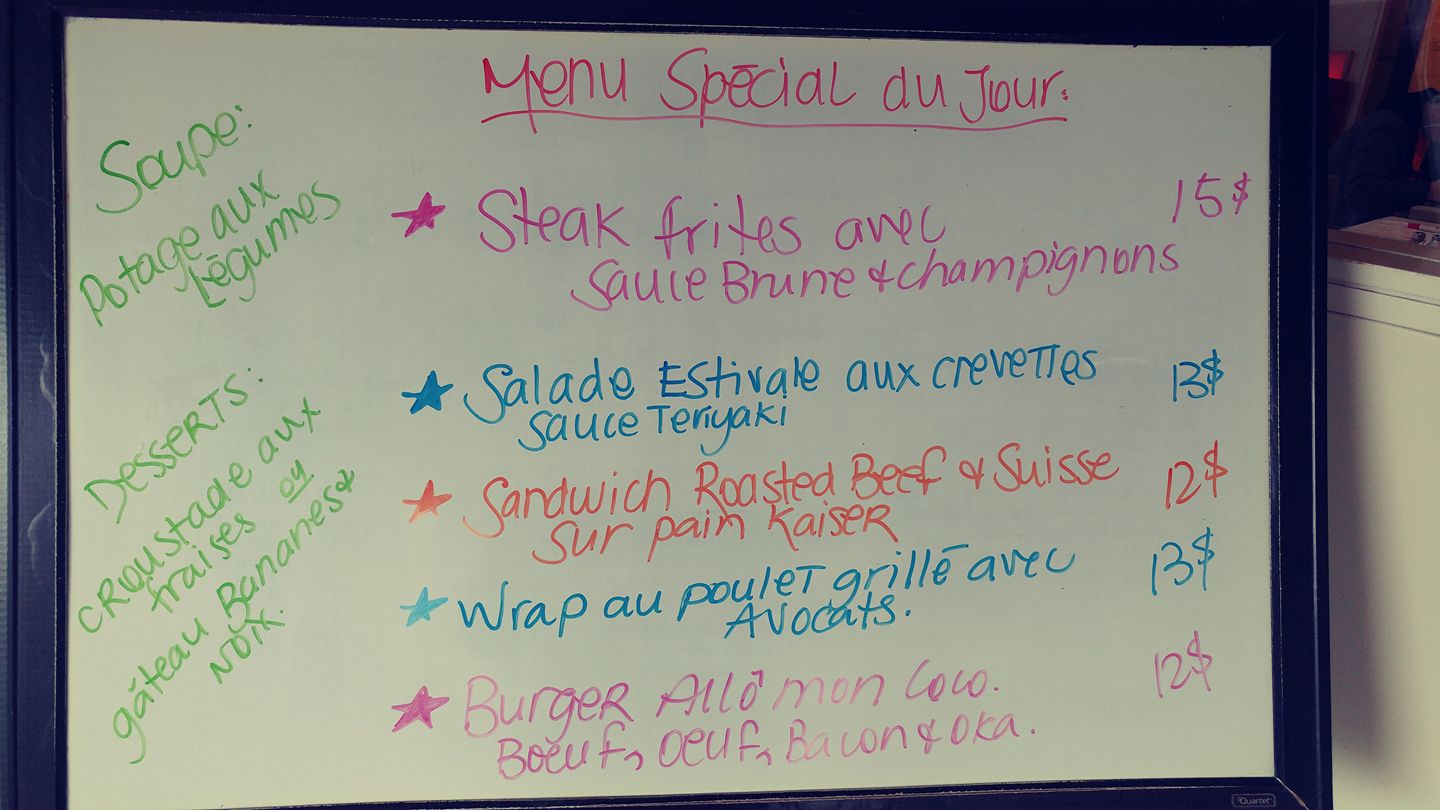 Menu Spécial du Jour:
Soupe:
Potage aux
Légumes
Desserts:
Croustade aux
fraises ou
gâteau Bananes &
Noix.
★ Steak frites avec 15$
Sauce Brune & champignons
★ Salade Estivale aux crevettes 13$
Sauce Teriyaki
★ Sandwich Roasted Beef & Suisse 12$
Sur pain Kaiser
★ Wrap au poulet grillé avec 13$
Avocats.
★ Burger Allô mon Coco. 12$
Boeuf, Oeuf, Bacon & Oka.
Quartet